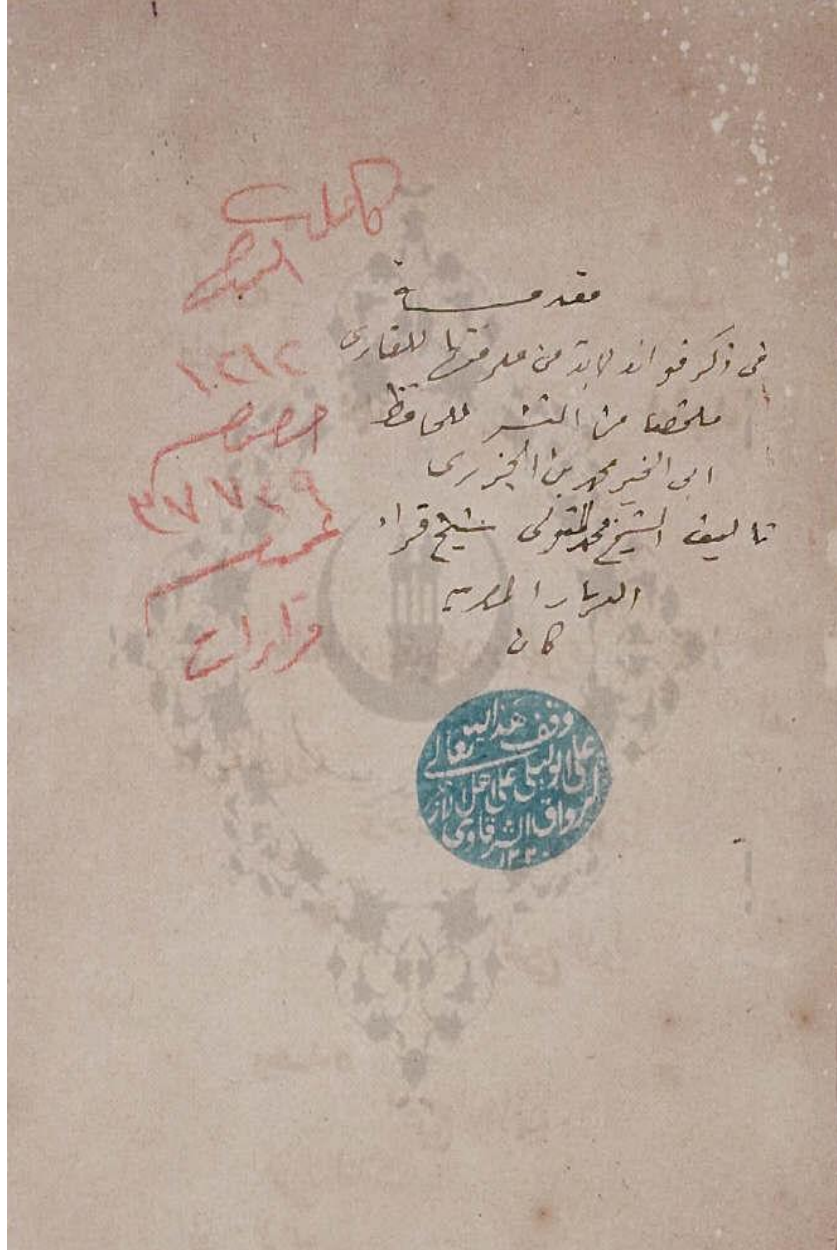 مقدمة
فى ذكر فوائد لابد من معرفتها للقارى
ملخصا من النشر للحافظ
ابى الخير محمد بن الجزرى
تاليف الشيخ محمد المتولى شيخ قراء
الديار المصريه
كان
١٢١٢
خصوصيه
٣٧٧٤٩
عموميه
قراءات
وقف هذا لله تعالى
على اهل
الرواق الشرقاوى
١٣٢٠